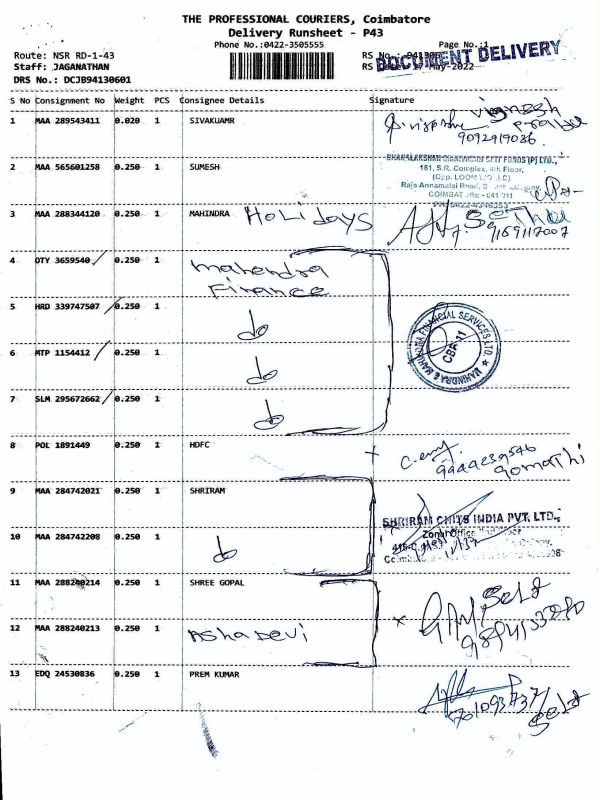 THE PROFESSIONAL COURIERS, Coimbatore
Delivery Runsheet - P43
Phone No.:0422-3505555
Page No.:1
Route: NSR RD-1-43
RS No.: 941306
DOCUMENT DELIVERY
Staff: JAGANATHAN
RS Date: 17-May-2022
DRS No.: DCJB94130601
S No Consignment No Weight PCS Consignee Details Signature
1 MAA 289543411 0.020 1 SIVAKUAMR
9092919036
2 MAA 565601258 0.250 1 SUMESH
181, S.R. Complex, 4th Floor,
Raja Annamalai Road,
3 MAA 288344120 0.250 1 MAHINDRA Holidays
9159117007
4 OTY 3659540 0.250 1 mahendra
Finance
5 HRD 339747507 0.250 1 do
MAHINDRA & MAHINDRA FINANCIAL SERVICES LTD.
CBR-11
6 MTP 1154412 0.250 1 do
7 SLM 295672662 0.250 1 do
8 POL 1891449 0.250 1 HDFC
gomathi
9 MAA 284742021 0.250 1 SHRIRAM
SHRIRAM CHITS INDIA PVT. LTD.,
Zonal Office
10 MAA 284742208 0.250 1 do
11 MAA 288240214 0.250 1 SHREE GOPAL
Self
12 MAA 288240213 0.250 1 Ashadevi
13 EDQ 24530836 0.250 1 PREM KUMAR
Self